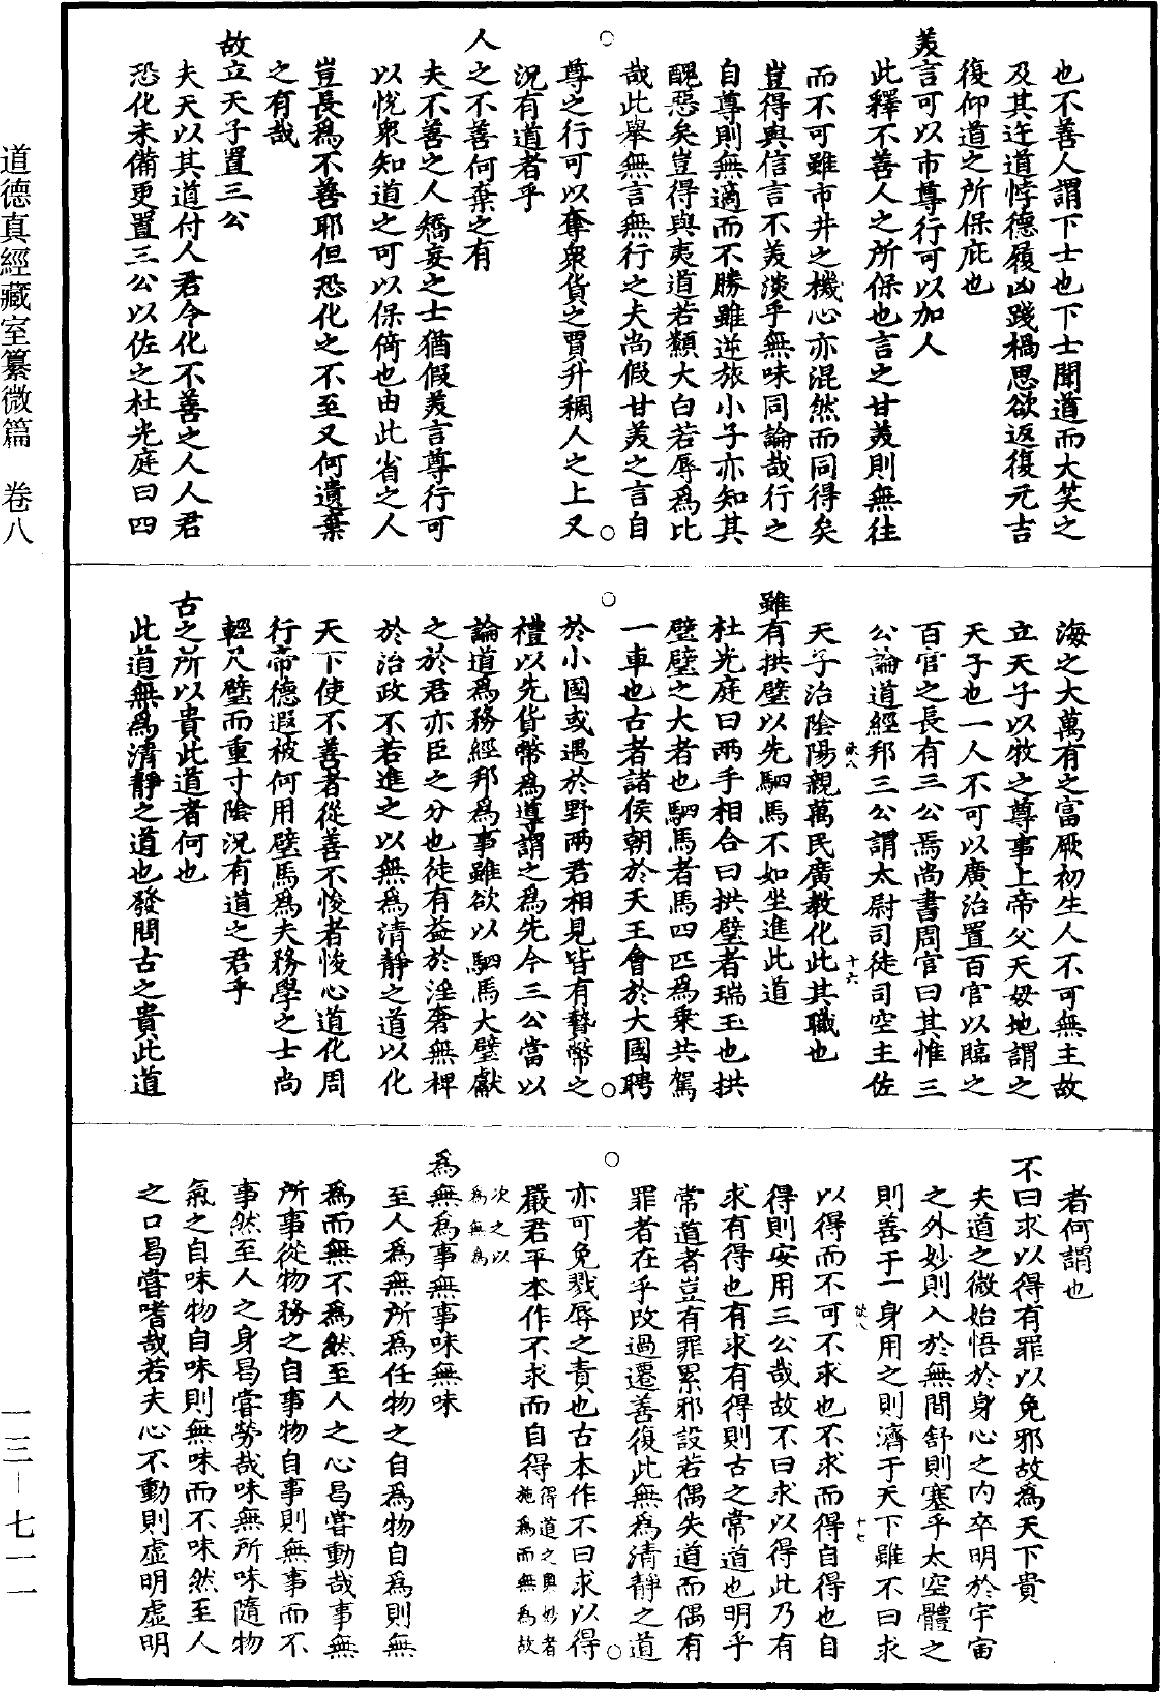 也不善人謂下士也下士聞道而大笑之
及其迕道悖德履凶踐禍思欲返復元吉
復仰道之所保庇也
美言可以市尊行可以加人
此釋不善人之所保也言之甘美則無往
而不可雖市井之機心亦混然而同得矣
豈得與信言不美淡乎無味同論哉行之
自尊則無適而不勝雖逆旅小子亦知其
醜惡矣豈得與夷道若纇大白若辱為比
哉此舉無言無行之夫尚假甘美之言自
尊之行可以奪衆貨之賈升稠人之上又
況有道者乎
人之不善何棄之有
夫不善之人矯妄之士猶假美言尊行可
以悅衆知道之可以保倚也由此省之人
豈長為不善耶但恐化之不至又何遺棄
之有哉
故立天子置三公
夫天以其道付人君令化不善之人人君
恐化未備更置三公以佐之杜光庭曰四
海之大萬有之富厥初生人不可無主故
立天子以牧之尊事上帝父天母地謂之
天子也一人不可以廣治置百官以臨之
百官之長有三公焉尚書周官曰其惟三
公論道經邦三公謂太尉司徒司空主佐
天子治陰陽親萬民廣教化此其職也
雖有拱璧以先駟馬不如坐進此道
杜光庭曰兩手相合曰拱璧者瑞玉也拱
璧璧之大者也駟馬者馬四匹為乘共駕
一車也古者諸侯朝於天王會於大國聘
於小國或遇於野兩君相見皆有贄幣之
禮以先貨幣為導謂之為先今三公當以
論道為務經邦為事雖欲以駟馬大璧獻
之於君亦臣之分也徒有益於淫奢無裨
於治政不若進之以無為清靜之道以化
天下使不善者從善不悛者悛心道化周
行帝德遐被何用璧馬為夫務學之士尚
輕尺璧而重寸陰況有道之君乎
古之所以貴此道者何也
此道無為清靜之道也發問古之貴此道
者何謂也
不曰求以得有罪以免邪故為天下貴
夫道之微始悟於身心之內卒明於宇宙
之外妙則入於無間舒則塞乎太空體之
則善于一身用之則濟于天下雖不曰求
以得而不可不求也不求而得自得也自
得則安用三公哉故不曰求以得此乃有
求有得也有求有得則古之常道也明乎
常道者豈有罪累邪設若偶失道而偶有
罪者在乎改過遷善復此無為清靜之道
亦可免戮辱之責也古本作不曰求以得
嚴君平本作不求而自得得道之奧妙者
施為而無為故
次之以
為無為
為無為事無事味無味
至人為無所為任物之自為物自為則無
為而無不為然至人之心曷嘗動哉事無
所事從物務之自事物自事則無事而不
事然至人之身曷嘗勞哉味無所味隨物
氣之自味物自味則無味而不味然至人
之口曷嘗嗜哉若夫心不動則虛明虛明
道德真經藏室纂微篇 卷八
一三—七一一